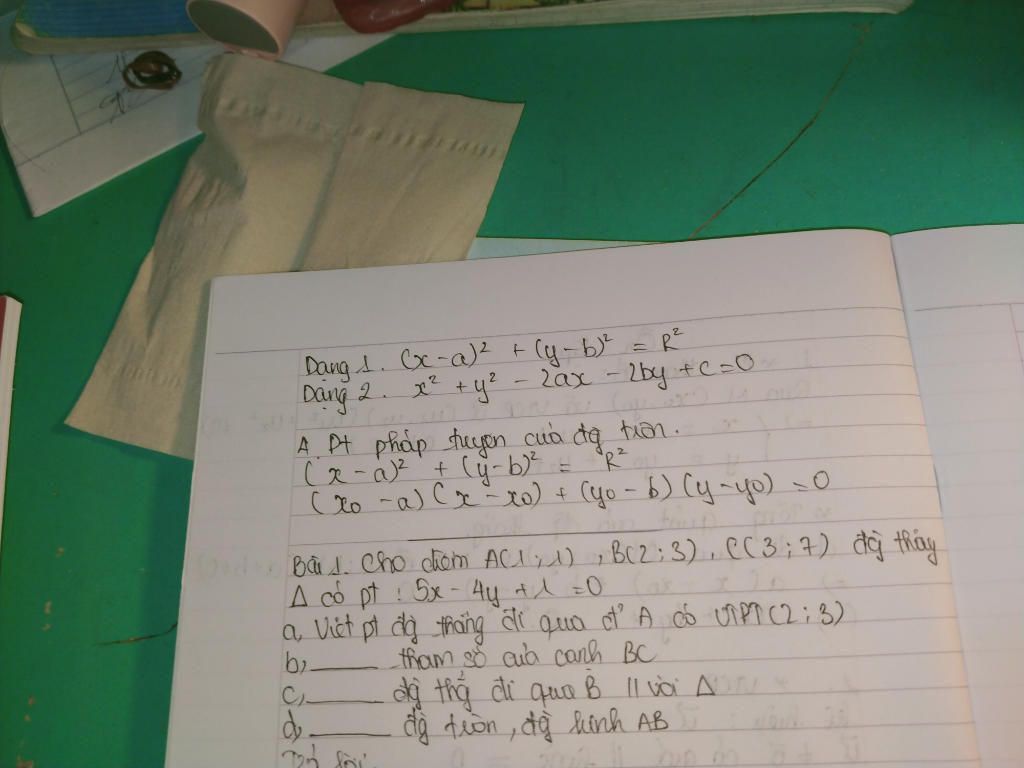 Dạng 1. (x-a)² + (y-b)² = R²
Dạng 2. x² + y² - 2ax - 2by + c = 0
A. Pt pháp tuyến của đg tròn.
(x-a)² + (y-b)² = R²
(x0 - a) (x - x0) + (y0 - b) (y - y0) = 0
Bài 1. Cho điểm A(1;1), B(2;3), C(3;7) đg thẳg
Δ có pt : 5x - 4y + 1 = 0
a, Viết pt đg thẳng đi qua đ' A có VTPT (2;3)
b, ____ tham số của cạnh BC
c, ____ đg thẳg đi qua B // với Δ
d, ____ đg tròn, đg kính AB